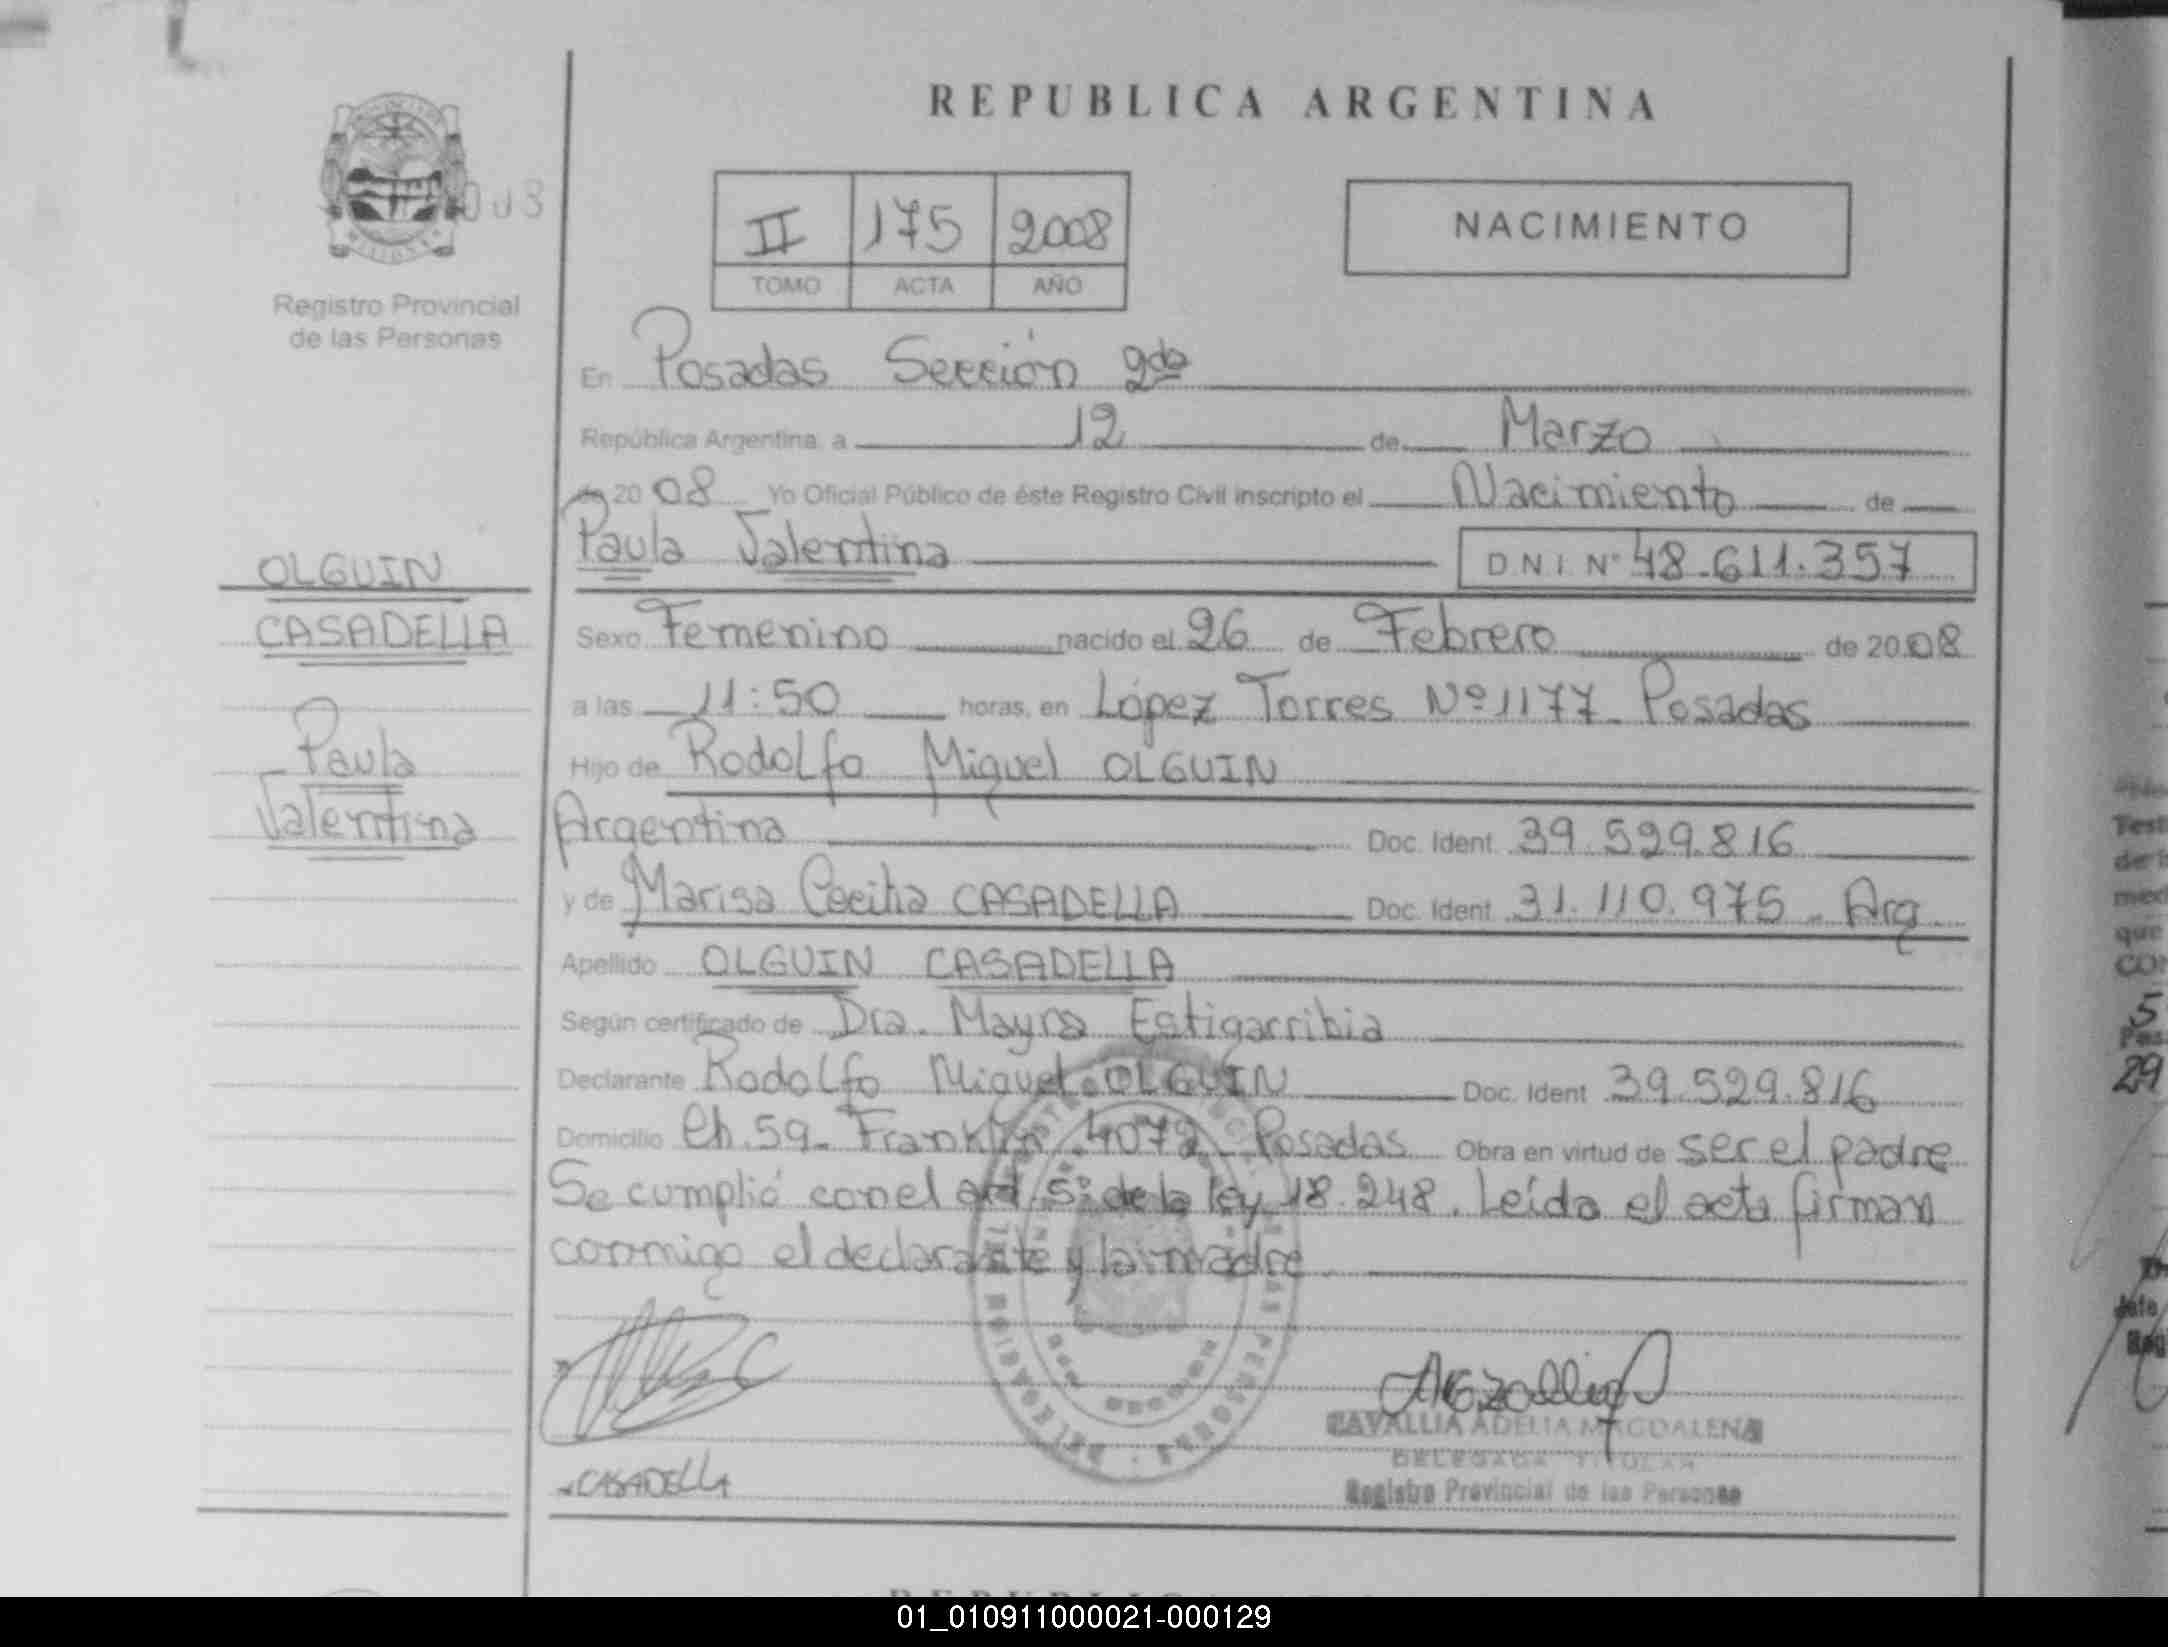 REPUBLICA ARGENTINA
II 175 2008
TOMO ACTA AÑO
NACIMIENTO
Registro Provincial
de las Personas
OLGUIN
CASADELLA
Paula
Valentina
En Posadas Sección 2da
República Argentina, a 12 de Marzo
de 2008 Yo Oficial Público de éste Registro Civil inscripto el Nacimiento de
Paula Valentina D.N.I. Nº 48.611.357
Sexo Femenino nacido el 26 de Febrero de 2008
a las 11:50 horas, en López Torres Nº 1177 Posadas
Hijo de Rodolfo Miguel OLGUIN
Argentina Doc. Ident. 39.529.816
y de Marisa Cecilia CASADELLA Doc. Ident. 31.110.975 Arg
Apellido OLGUIN CASADELLA
Según certificado de Dra. Mayra Estigarribia
Declarante Rodolfo Miguel OLGUIN Doc. Ident. 39.529.816
Domicilio Ch. 59 - Franklin 4072 Posadas Obra en virtud de ser el padre
Se cumplió con el art 5º de la ley 18.248. Leída el acta firman
conmigo el declarante y la madre
CASADELLA
CAVALLIA ADELIA MAGDALENA
DELEGADA TITULAR
Registro Provincial de las Personas
01_010911000021-000129